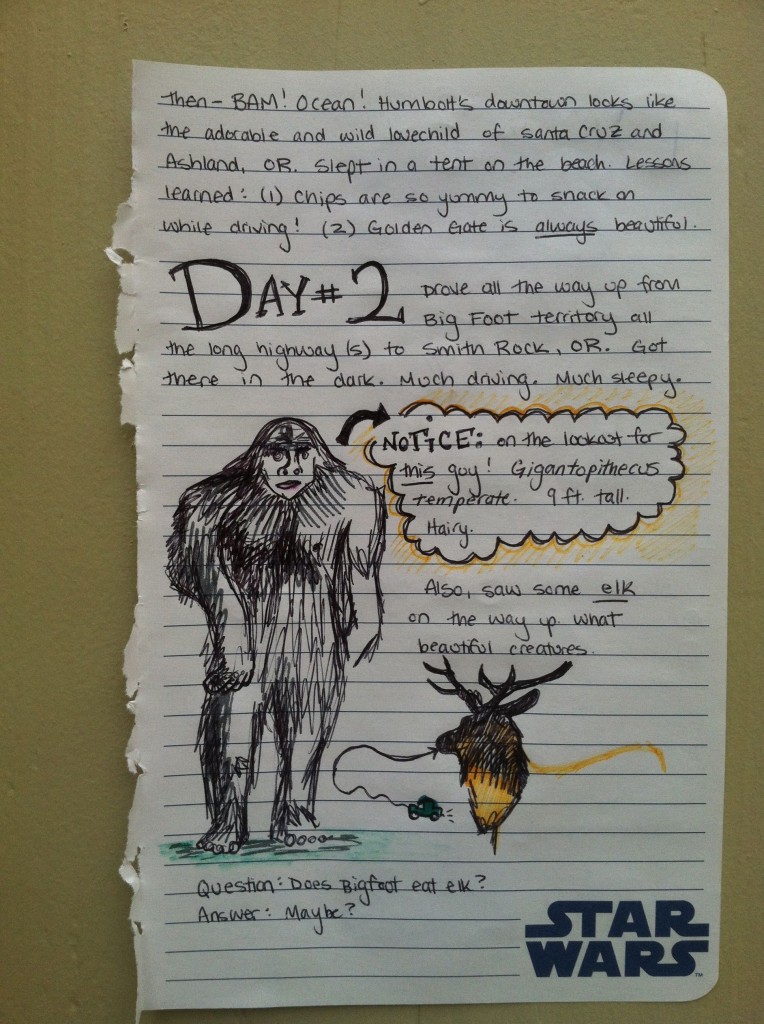 then - BAM! Ocean! Humboltt's downtown looks like
the adorable and wild lovechild of santa cruz and
Ashland, OR. Slept in a tent on the beach. Lessons
learned: (1) Chips are so yummy to snack on
while driving! (2) Golden Gate is always beautiful.
DAY #2 Drove all the way up from
Big Foot territory all
the long highway(s) to Smith Rock, OR. Got
there in the dark. Much driving. Much sleepy.
NOTiCE: on the lookout for
this guy! Gigantopithecus
temperate. 9 ft. tall.
Hairy.
Also, saw some elk
on the way up. What
beautiful creatures.
Question: Does Bigfoot eat elk?
Answer: Maybe?
STAR
WARS™